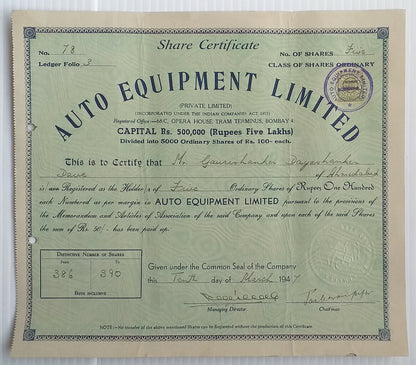 Share Certificate
No. 78 No. OF SHARES Five
Ledger Folio 3 CLASS OF SHARES ORDINARY
AUTO EQUIPMENT LIMITED
(PRIVATE LIMITED)
(INCORPORATED UNDER THE INDIAN COMPANIES ACT 1913)
Registered Office:—68C, OPERA HOUSE TRAM TERMINUS, BOMBAY 4.
CAPITAL Rs. 500,000 (Rupees Five Lakhs)
Divided into 5000 Ordinary Shares of Rs. 100- each.
This is to Certify that Mr. Gaurishanker Dayashanker
Dave of Ahmedabad
is/are Registered as the Holder/s of Five Ordinary Shares of Rupees One Hundred
each Numbered as per margin in AUTO EQUIPMENT LIMITED pursuant to the provisions of the
Memorandum and Articles of Association of the said Company and upon each of the said Shares
the sum of Rs. 50/- has been paid up.
DISTINCTIVE NUMBER OF SHARES
From To
386 390
BOTH INCLUSIVE
Given under the Common Seal of the Company
this Tenth day of March 1947
Managing Director Chairman
NOTE:—No transfer of the above mentioned Shares can be registered without the production of this Certificate.